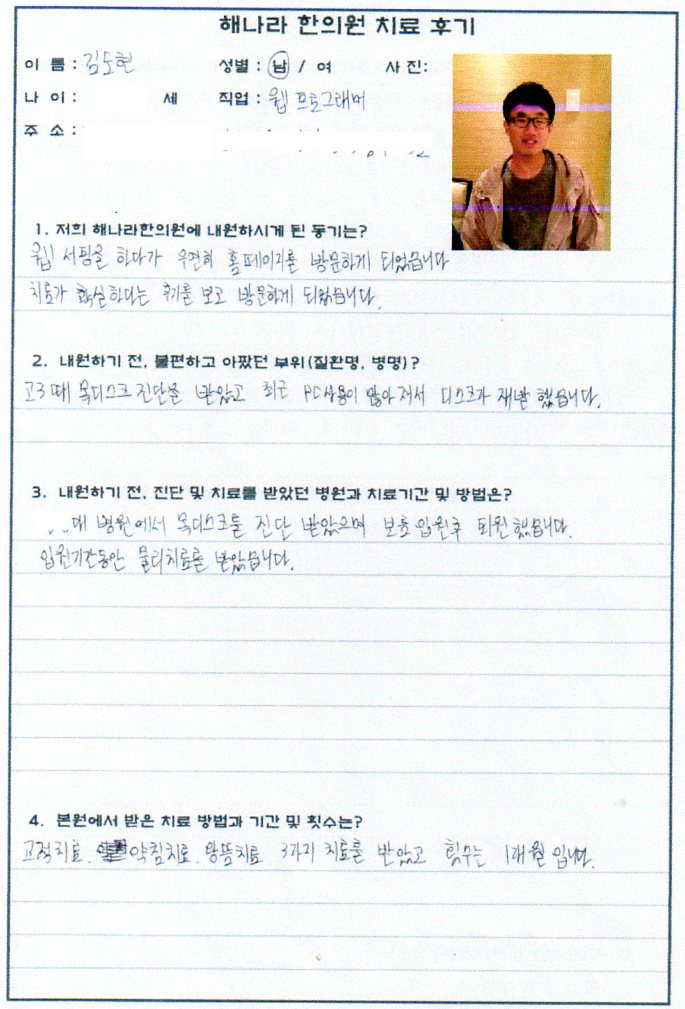 해나라 한의원 치료 후기
이 름 : 김도현 성별 : 남 / 여 사 진:
나 이 : 세 직업 : 웹 프로그래머
주 소 :
1. 저희 해나라한의원에 내원하시게 된 동기는?
웹 서핑을 하다가 우연히 홈페이지를 방문하게 되었습니다
치료가 확실하다는 후기를 보고 방문하게 되었습니다.
2. 내원하기 전, 불편하고 아팠던 부위(질환명, 병명)?
고3때 목디스크 진단을 받았고 최근 PC사용이 많아져서 디스크가 재발 했습니다.
3. 내원하기 전, 진단 및 치료를 받았던 병원과 치료기간 및 방법은?
대 병원에서 목디스크를 진단 받았으며 보호 입원후 퇴원 했습니다.
입원기간동안 물리치료를 받았습니다.
4. 본원에서 받은 치료 방법과 기간 및 횟수는?
교정치료, 약침치료, 왕뜸치료 3가지 치료를 받았고 횟수는 1개월 입니다.